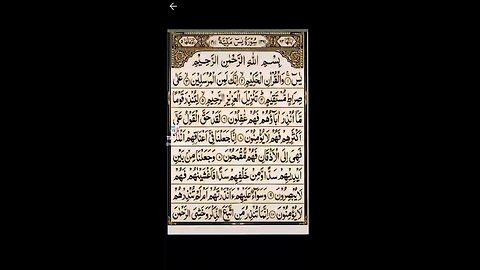 سورة يس مكية
بسم الله الرحمن الرحيم
يس والقرآن الحكيم إنك لمن المرسلين على
صراط مستقيم تنزيل العزيز الرحيم لتنذر قوما
ما أنذر آباؤهم فهم غفلون لقد حق القول على
أكثرهم فهم لا يؤمنون إنا جعلنا في أعناقهم أغللا
فهي إلى الأذقان فهم مقمحون وجعلنا من بين
أيديهم سدا ومن خلفهم سدا فأغشينهم فهم
لا يبصرون وسواء عليهم ءأنذرتهم أم لم تنذرهم
لا يؤمنون إنما تنذر من اتبع الذكر وخشي الرحمن